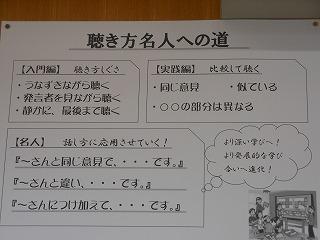 聴き方名人への道
【入門編】 聴き方しぐさ
・うなずきながら聴く
・発言者を見ながら聴く
・静かに、最後まで聴く
【実践編】 比較して聴く
・同じ意見 ・似ている
・○○の部分は異なる
【名人】 話し方に応用させていく!
『～さんと同じ意見で、・・・です。』
『～さんと違い、・・・です。』
『～さんにつけ加えて、・・・です。』
より深い学びへ!
より発展的な学び
合いへ進化!